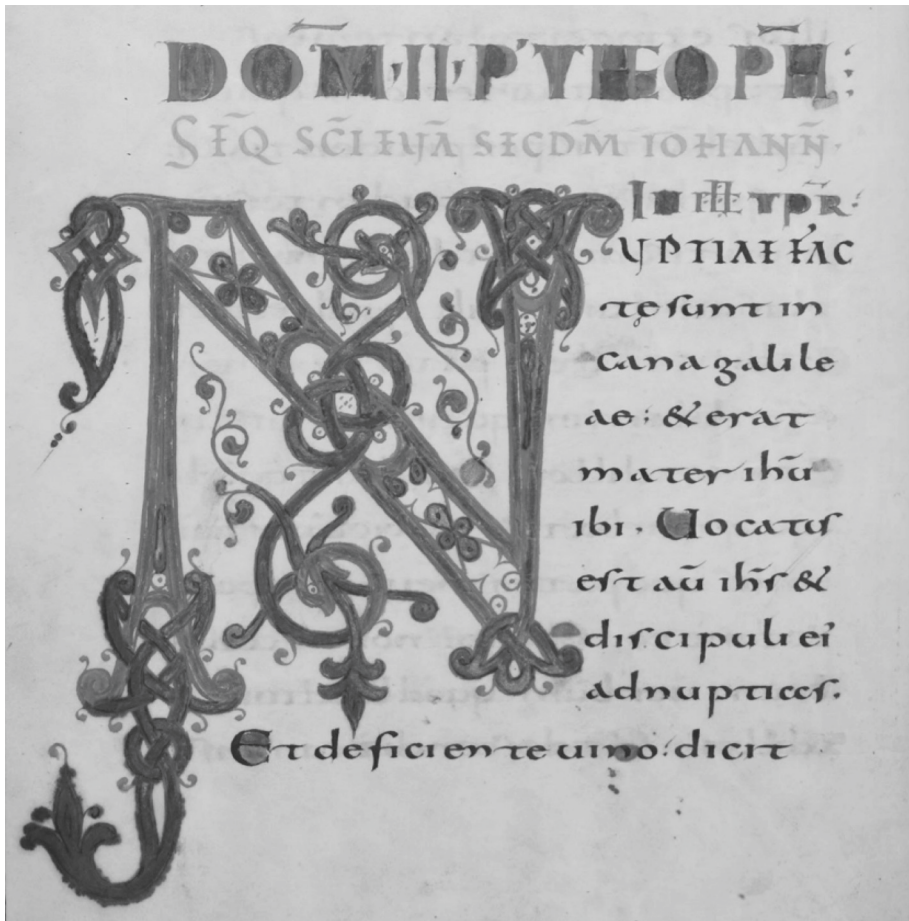 DOM̄·II·P'THEOPH̄:
SĒQ SC̄I EUĀ SECDM̄ IOHANN̄·
IN ILL TPR̄·
NUPTIAE FAC
tę sunt in
Cana galile
ae: & erat
mater ihū
ibi. Uocatus
est aū ihs̄ &
discipuli ei'
ad nuptias.
Et deficiente uino: dicit